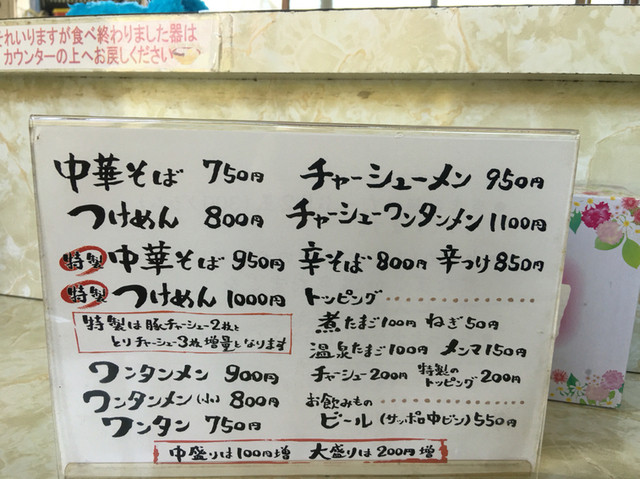 それいりますが食べ終わりました器は
カウンターの上へお戻しください
中華そば 750円
つけめん 800円
特製 中華そば 950円
特製 つけめん 1000円
特製は豚チャーシュー2枚と
とりチャーシュー3枚増量となります
ワンタンメン 900円
ワンタンメン(小) 800円
ワンタン 750円
チャーシューメン 950円
チャーシューワンタンメン 1100円
辛そば 800円 辛つけ 850円
トッピング
煮たまご 100円 ねぎ 50円
温泉たまご 100円 メンマ 150円
チャーシュー 200円 特製のトッピング 200円
お飲みもの
ビール(サッポロ中ビン) 550円
中盛りは100円増 大盛りは200円増